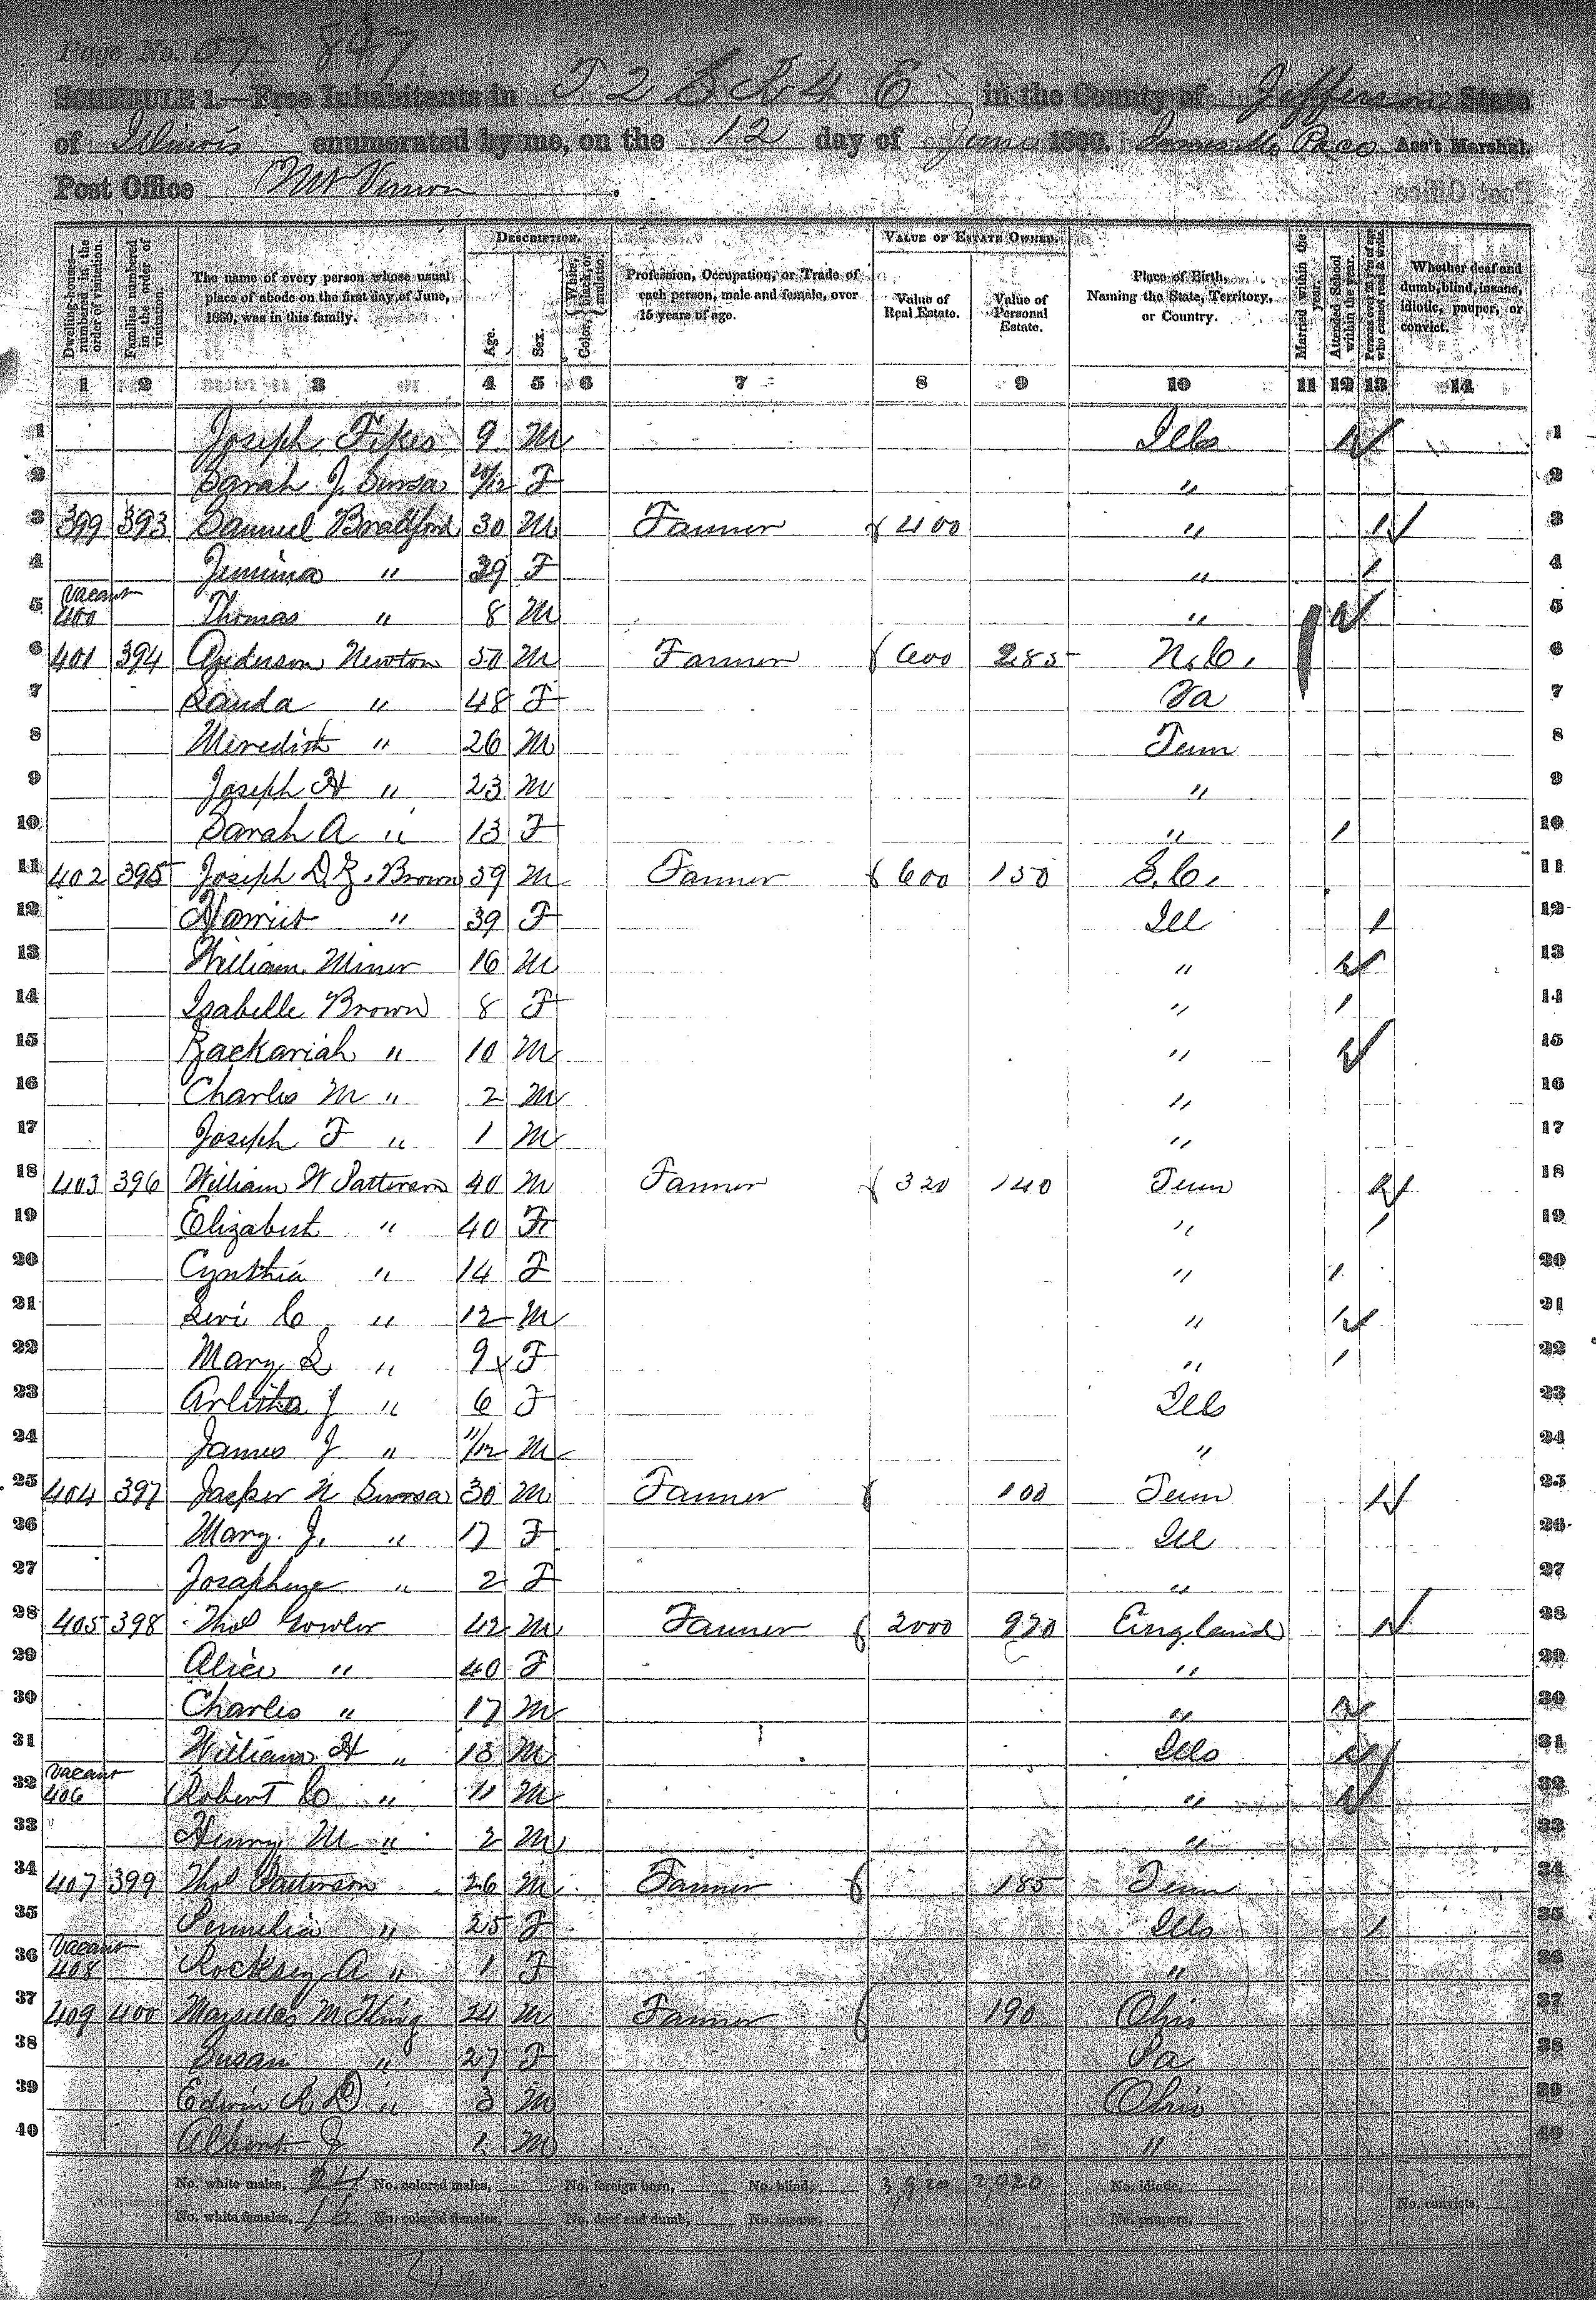 Page No. 57 847
SCHEDULE 1.—Free Inhabitants in T 2 S R 4 E in the County of Jefferson State
of Illinois enumerated by me, on the 12 day of June 1860. Ass't Marshal.
Post Office Mt Vernon
DESCRIPTION. VALUE OF ESTATE OWNED.
Dwelling-houses—numbered in the order of visitation. Families numbered in the order of visitation. The name of every person whose usual place of abode on the first day of June, 1860, was in this family. Age. Sex. Color, {White, black, or mulatto. Profession, Occupation, or Trade of each person, male and female, over 15 years of age. Value of Real Estate. Value of Personal Estate. Place of Birth, Naming the State, Territory, or Country. Married within the year. Attended School within the year. Persons over 20 y'rs of age who cannot read & write. Whether deaf and dumb, blind, insane, idiotic, pauper, or convict.
1 2 3 4 5 6 7 8 9 10 11 12 13 14
1 Joseph Fikes 9 M Ills 1 1
2 Sarah J. 10/12 F " 2
3 399 393 Samuel Bradford 30 M Farmer 400 " 1 3
4 Jemima " 29 F " 1 4
5 Vacant 400 Thomas " 8 M " 1 5
6 401 394 Anderson Newton 50 M Farmer 600 285 N.C. 6
7 " 48 F Va 7
8 Meredith " 26 M Tenn 8
9 Joseph H " 23 M " 9
10 Sarah A " 13 F " 1 10
11 402 395 Joseph D. Z. Brown 59 M Farmer 600 150 S.C. 11
12 Harriet " 39 F Ill 1 12
13 William Miner 16 M " 1 13
14 Isabelle Brown 8 F " 1 14
15 Zackariah " 10 M " 1 15
16 Charles M " 2 M " 16
17 Joseph F " 1 M " 17
18 403 396 William W Patterson 40 M Farmer 320 140 Tenn 1 18
19 Elizabeth " 40 F " 1 19
20 Cynthia " 14 F " 1 20
21 Levi C " 12 M " 1 21
22 Mary L " 9 F " 1 22
23 Arlitha J " 6 F Ills 23
24 James J " 11/12 M " 24
25 404 397 N 30 M Farmer 100 Tenn 1 25
26 Mary J. " 17 F Ill 26
27 Josaphine " 2 F " 27
28 405 398 Thos Gowler 42 M Farmer 2000 970 England 1 28
29 Alice " 40 F " 29
30 Charles " 17 M " 1 30
31 William H " 13 M Ills 1 31
32 Vacant 406 Robert C " 11 M " 1 32
33 Henry M " 2 M " 33
34 407 399 Thos Patterson 26 M Farmer 185 Tenn 34
35 Permelia " 25 F Ills 1 35
36 Vacant 408 Rocksey A " 1 F " 36
37 409 400 Marsellas M King 24 M Farmer 190 Ohio 37
38 Susan " 27 F Pa 38
39 Edwin R D " 3 M Ohio 39
40 Albert J 1 M " 40
No. white males, 24 No. colored males, No. foreign born, No. blind, 3,920 2,020 No. idiotic,
No. white females, 16 No. colored females, No. deaf and dumb, No. insane, No. paupers, No. convicts,
40